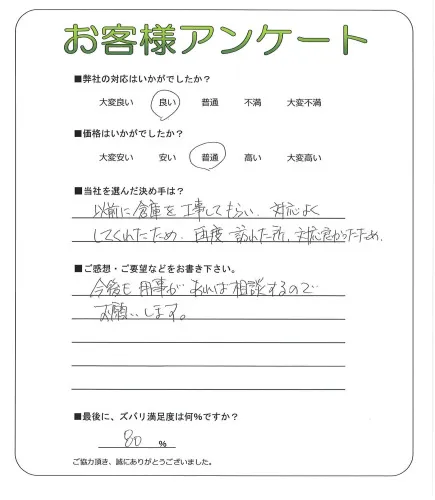 お客様アンケート
■弊社の対応はいかがでしたか？
大変良い 良い 普通 不満 大変不満
■価格はいかがでしたか？
大変安い 安い 普通 高い 大変高い
■当社を選んだ決め手は？
以前に倉庫を工事してもらい、対応よく
してくれたため、再度訪れた所、対応良かったため、
■ご感想・ご要望などをお書き下さい。
今後も用事があれば相談するので
お願いします。
■最後に、ズバリ満足度は何％ですか？
80 ％
ご協力頂き、誠にありがとうございました。